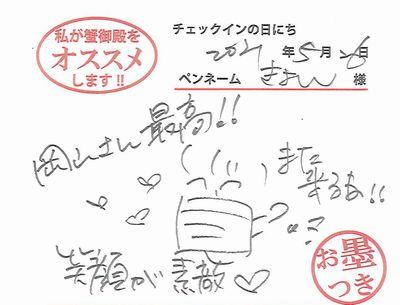 私が蟹御殿を
オススメ
します!!
チェックインの日にち
2021年5月26日
ペンネーム きよん 様
岡山さん最高!!
また
来るね!!
笑顔が素敵♡
お墨
つき